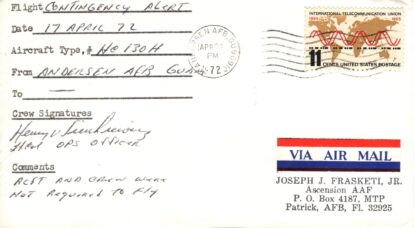 Flight CONTINGENCY ALERT
Date 17 APRIL 72
Aircraft Type, # HC 130H
From ANDERSEN AFB GUAM
To —
Crew Signatures
OPS OFFICER
Comments
ACFT AND CREW WERE
NOT REQUIRED TO FLY
ANDERSEN AFB, GUAM
APR
PM
1972
INTERNATIONAL TELECOMMUNICATION UNION
1865 1965
11 CENTS UNITED STATES POSTAGE
VIA AIR MAIL
JOSEPH J. FRASKETI, JR.
Ascension AAF
P. O. Box 4187, MTP
Patrick, AFB, Fl. 32925